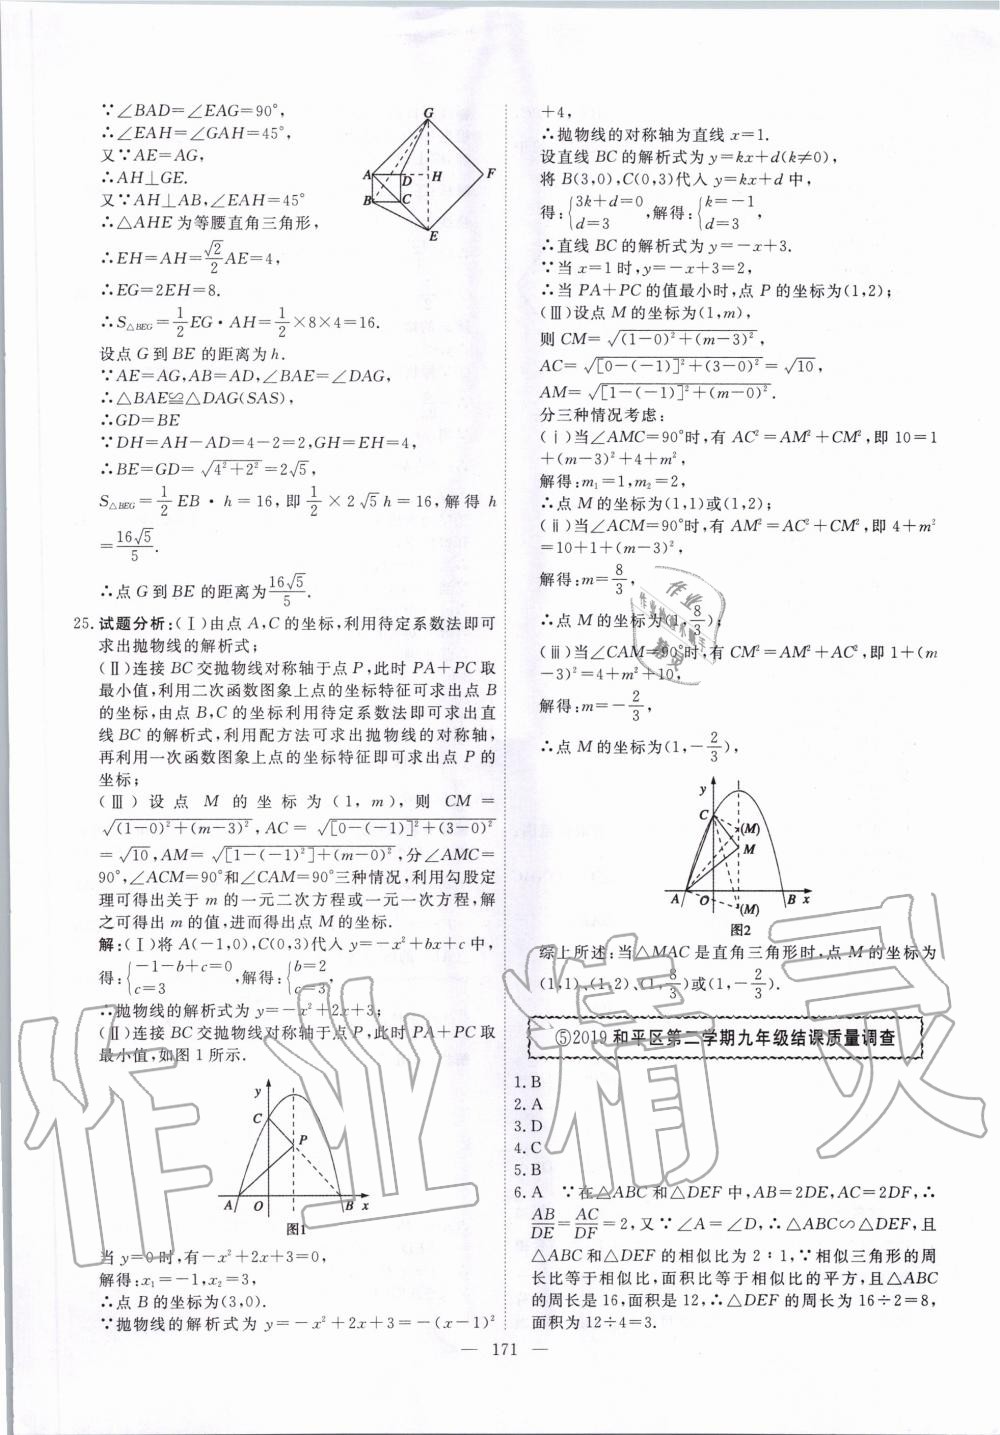 ∵∠BAD=∠EAG=90°,
∴∠EAH=∠GAH=45°,
又∵AE=AG,
∴AH⊥GE.
又∵AH⊥AB,∠EAH=45°
∴△AHE为等腰直角三角形,
∴EH=AH=√2/2 AE=4,
∴EG=2EH=8.
∴S△BEG=1/2 EG·AH=1/2×8×4=16.
设点G到BE的距离为h.
∵AE=AG,AB=AD,∠BAE=∠DAG,
∴△BAE≌△DAG(SAS),
∴GD=BE
∵DH=AH-AD=4-2=2,GH=EH=4,
∴BE=GD=√(4²+2²)=2√5,
S△BEG=1/2 EB·h=16,即1/2×2√5h=16,解得h
=16√5/5.
∴点G到BE的距离为16√5/5.
G
A
D
H
F
B
C
E
25.试题分析:(Ⅰ)由点A,C的坐标,利用待定系数法即可
求出抛物线的解析式;
(Ⅱ)连接BC交抛物线对称轴于点P,此时PA+PC取
最小值,利用二次函数图象上点的坐标特征可求出点B
的坐标,由点B,C的坐标利用待定系数法即可求出直
线BC的解析式,利用配方法可求出抛物线的对称轴,
再利用一次函数图象上点的坐标特征即可求出点P的
坐标;
(Ⅲ)设点M的坐标为(1,m),则CM=
√((1-0)²+(m-3)²),AC=√([0-(-1)]²+(3-0)²)
=√10,AM=√([1-(-1)²]+(m-0)²),分∠AMC=
90°,∠ACM=90°和∠CAM=90°三种情况,利用勾股定
理可得出关于m的一元二次方程或一元一次方程,解
之可得出m的值,进而得出点M的坐标.
解:(Ⅰ)将A(-1,0),C(0,3)代入y=-x²+bx+c中,
得:{-1-b+c=0 c=3,解得:{b=2 c=3,
∴抛物线的解析式为y=-x²+2x+3;
(Ⅱ)连接BC交抛物线对称轴于点P,此时PA+PC取
最小值,如图1所示.
y
C
P
A
O
B
x
图1
当y=0时,有-x²+2x+3=0,
解得:x₁=-1,x₂=3,
∴点B的坐标为(3,0).
∵抛物线的解析式为y=-x²+2x+3=-(x-1)²
+4,
∴抛物线的对称轴为直线x=1.
设直线BC的解析式为y=kx+d(k≠0),
将B(3,0),C(0,3)代入y=kx+d中,
得:{3k+d=0 d=3,解得:{k=-1 d=3,
∴直线BC的解析式为y=-x+3.
∵当x=1时,y=-x+3=2,
∴当PA+PC的值最小时,点P的坐标为(1,2);
(Ⅲ)设点M的坐标为(1,m),
则CM=√((1-0)²+(m-3)²),
AC=√([0-(-1)]²+(3-0)²)=√10,
AM=√([1-(-1)]²+(m-0)²).
分三种情况考虑:
(ⅰ)当∠AMC=90°时,有AC²=AM²+CM²,即10=1
+(m-3)²+4+m²,
解得:m₁=1,m₂=2,
∴点M的坐标为(1,1)或(1,2);
(ⅱ)当∠ACM=90°时,有AM²=AC²+CM²,即4+m²
=10+1+(m-3)²,
解得:m=8/3,
∴点M的坐标为(1,8/3);
(ⅲ)当∠CAM=90°时,有CM²=AM²+AC²,即1+(m
-3)²=4+m²+10,
解得:m=-2/3,
∴点M的坐标为(1,-2/3),
y
C
(M)
M
A
O
B
x
(M)
图2
综上所述:当△MAC是直角三角形时,点M的坐标为
(1,1)、(1,2)、(1,8/3)或(1,-2/3).
⑤2019和平区第二学期九年级结课质量调查
1.B
2.A
3.D
4.C
5.B
6.A ∵在△ABC和△DEF中,AB=2DE,AC=2DF,∴
AB/DE=AC/DF=2,又∵∠A=∠D,∴△ABC∽△DEF,且
△ABC和△DEF的相似比为2∶1,∵相似三角形的周
长比等于相似比,面积比等于相似比的平方,且△ABC
的周长是16,面积是12,∴△DEF的周长为16÷2=8,
面积为12÷4=3.
— 171 —
作业精灵